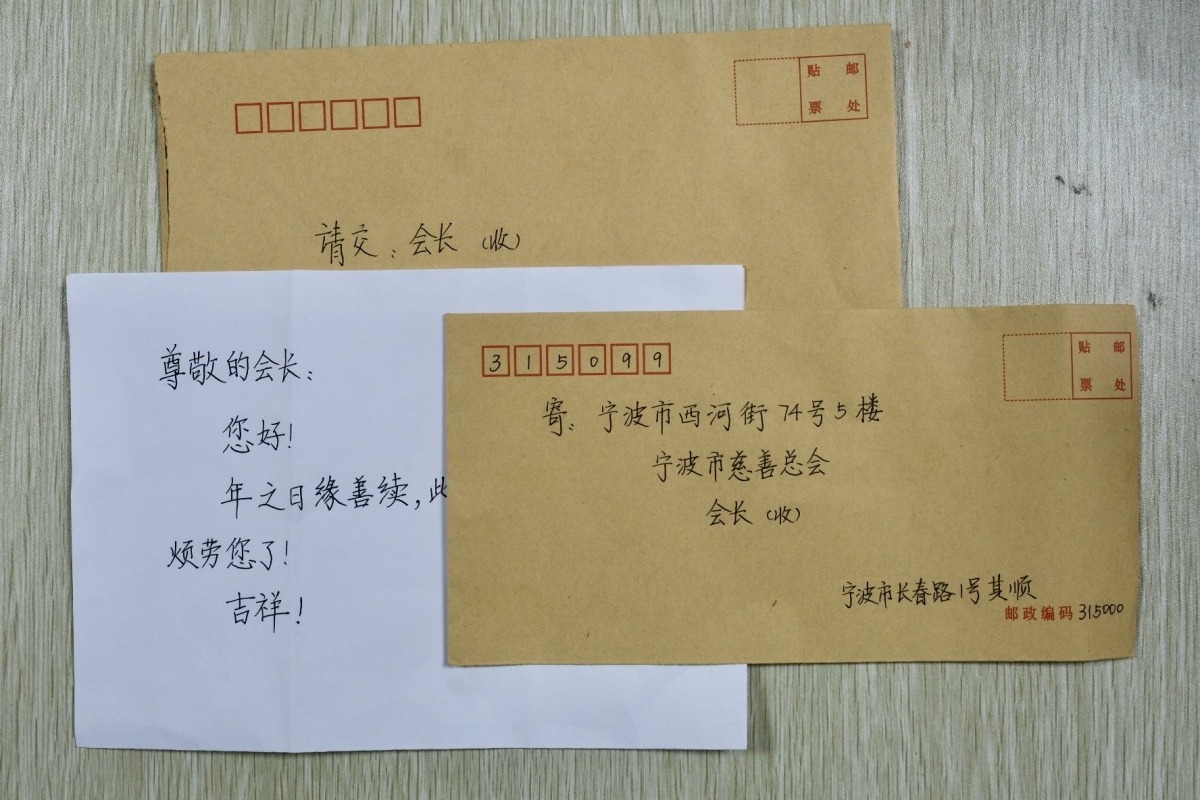 贴 邮
票 处
请交:会长(收)
尊敬的会长:
您好!
年之日缘善续,此
烦劳您了!
吉祥!
315099
贴 邮
票 处
寄:宁波市西河街74号5楼
宁波市慈善总会
会长(收)
宁波市长春路1号其顺
邮政编码 315000